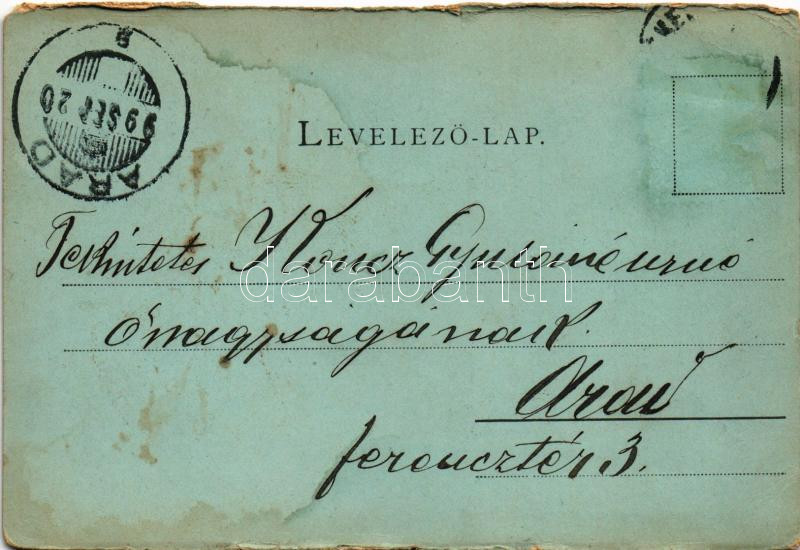 ARAD
99 SEP 20
LEVELEZŐ-LAP.
Tekintetes Koncz Gyuláné urnő
őnagyságának.
Arad
ferencztér 3.
darabanth